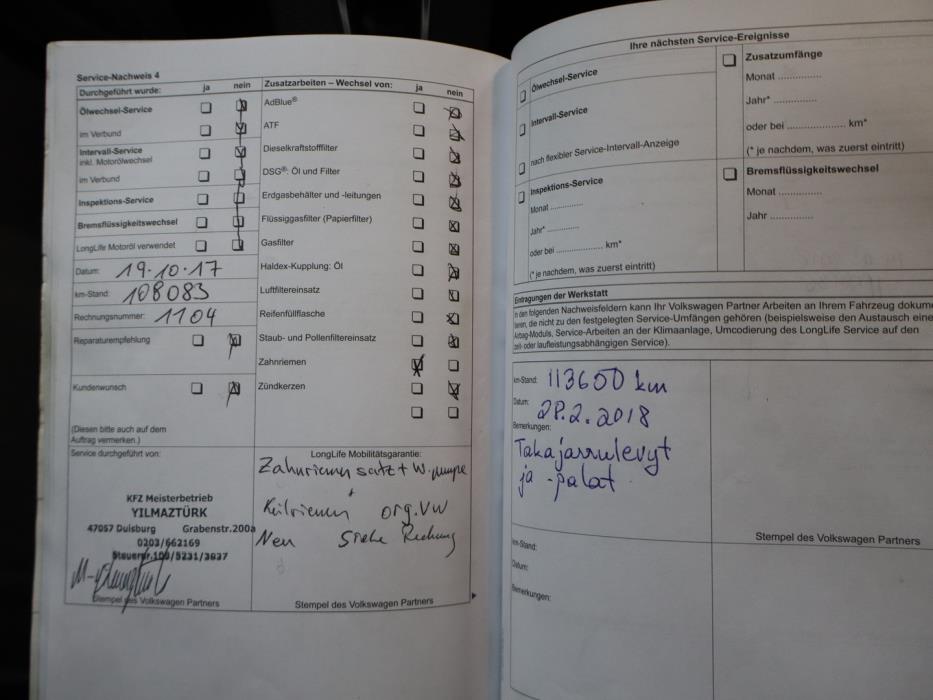 Service-Nachweis 4
Durchgeführt wurde: ja nein
Ölwechsel-Service
im Verbund
Intervall-Service
inkl. Motorölwechsel
im Verbund
Inspektions-Service
Bremsflüssigkeitswechsel
LongLife Motoröl verwendet
Datum: 19.10.17
km-Stand: 108083
Rechnungsnummer: 1104
Reparaturempfehlung
Kundenwunsch
(Diesen bitte auch auf dem
Auftrag vermerken.)
Service durchgeführt von:
KFZ Meisterbetrieb
YILMAZTÜRK
47057 Duisburg Grabenstr.200a
0203/662169
Steuernr.109/5231/3837
Stempel des Volkswagen Partners
Zusatzarbeiten – Wechsel von: ja nein
AdBlue®
ATF
Dieselkraftstofffilter
DSG®: Öl und Filter
Erdgasbehälter und -leitungen
Flüssiggasfilter (Papierfilter)
Gasfilter
Haldex-Kupplung: Öl
Luftfiltereinsatz
Reifenfüllflasche
Staub- und Pollenfiltereinsatz
Zahnriemen
Zündkerzen
LongLife Mobilitätsgarantie:
Zahnriemen satz + W.pumpe
+
Keilriemen org.VW
Neu Siehe Rechung
Stempel des Volkswagen Partners
Ihre nächsten Service-Ereignisse
Ölwechsel-Service
Intervall-Service
nach flexibler Service-Intervall-Anzeige
Inspektions-Service
Monat ..............
Jahr* ..............
oder bei .................... km*
(* je nachdem, was zuerst eintritt)
Zusatzumfänge
Monat ..............
Jahr* ..............
oder bei .................... km*
(* je nachdem, was zuerst eintritt)
Bremsflüssigkeitswechsel
Monat ..............
Jahr ..............
Eintragungen der Werkstatt
In den folgenden Nachweisfeldern kann Ihr Volkswagen Partner Arbeiten an Ihrem Fahrzeug dokume
die nicht zu den festgelegten Service-Umfängen gehören (beispielsweise den Austausch eine
Airbag-Moduls, Service-Arbeiten an der Klimaanlage, Umcodierung des LongLife Service auf den
zeit- oder laufleistungsabhängigen Service).
km-Stand: 113650 km
Datum: 28.2.2018
Bemerkungen:
Takajarrulevyt
ja -palat
Stempel des Volkswagen Partners
km-Stand:
Datum:
Bemerkungen: